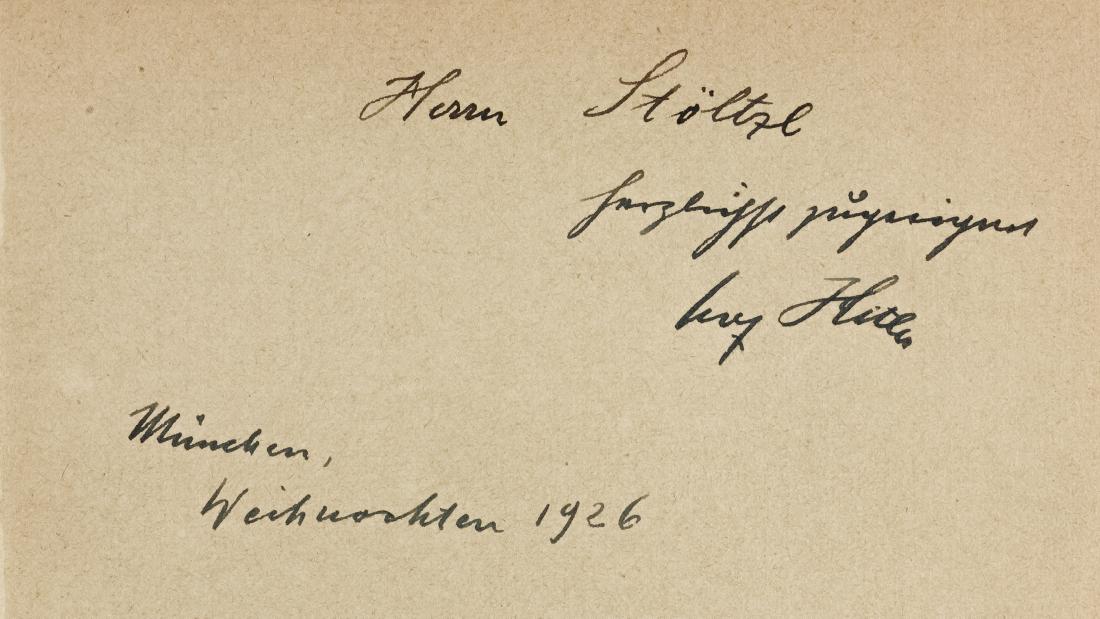 Herrn Stöltzl
herzlichst zugeeignet
Adolf Hitler
München,
Weihnachten 1926